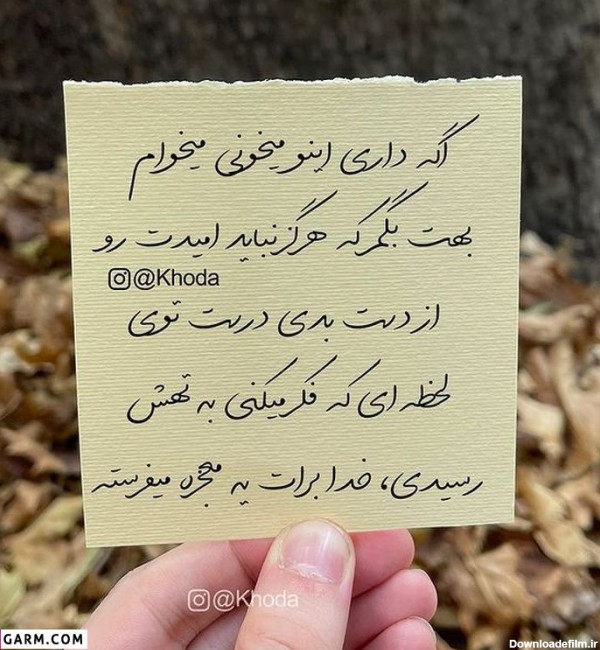 اگه داری اینو میخونی میخوام
بهت بگم که هرگز نباید امیدت رو
@Khoda
از دست بدی درست توی
لحظه ای که فکر میکنی به تهش
رسیدی، خدا برات یه معجزه میفرسته
@Khoda
GARM.COM
Downloadefilm.ir